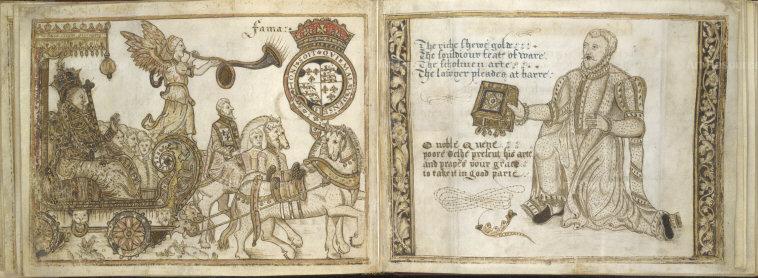 Fama:
SOIT QVI MAL
The riche shewe gold:
The souldiour feat of ware.
The scholmen arte:
The lawyer pleades at barre.
O noble Quene
poore present his arte
and prayes your grace
to take it in good parte.